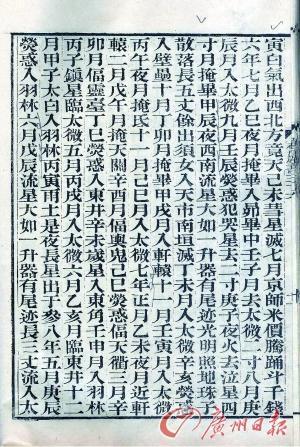 寅白氣出西北方竟天己未彗星滅七月京師米價騰踊斗一錢
六年七月乙巳夜月掩畢入昴畢中壬子月去太微二寸八月庚
辰月入太微九月壬辰熒惑犯哭星去二寸庚子夜火去泣星四
寸月掩畢甲辰夜西南流星大如一升器有尾迹光明照地珠子
散落長五丈餘出須女入天市南垣滅丁未月入太微辛亥熒惑
入壁壘十月丁卯月掩畢甲戌月入軒轅十一月壬寅月入太微
丙午夜月掩氐十一月己巳月入太微七年正月乙未夜月近軒
轅二月戊午月掩天關辛酉月偪輿鬼己巳熒惑偪天衢三月辛
卯月偪靈臺丁巳熒惑入東井辛未歲星入東角壬申月入羽林
丙子鎮星臨太微五月丙戌月入太微六月乙亥月臨東井十二
月甲子太白入羽林丙寅雨土是夜長星出于參八年五月庚辰
熒惑入羽林六月戊辰流星大如一升器有尾迹長三丈流入太
廣州日報